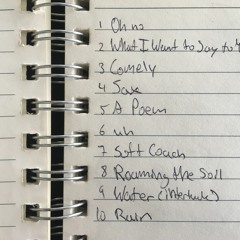 1 Oh no
2 What I Want to Say to
3 Comely
4 Sax
5 A Poem
6 uh
7 Soft Couch
8 Roaming the Soil
9 Water (interlude)
10 Ruin